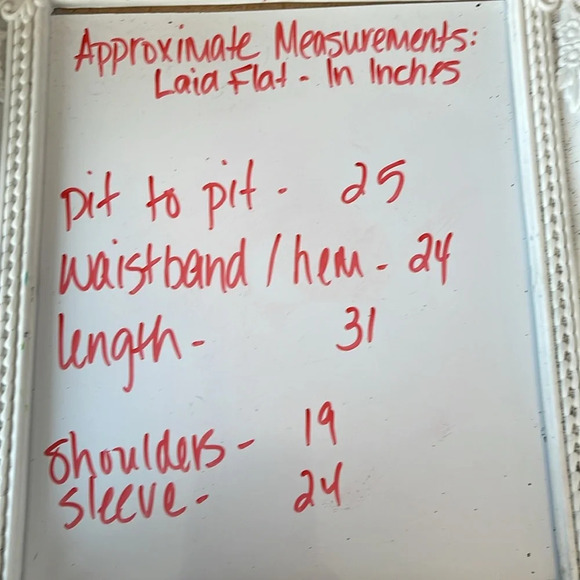 Approximate Measurements:
Laid Flat - In Inches
pit to pit - 25
waistband / hem - 24
length - 31
shoulders - 19
sleeve - 24